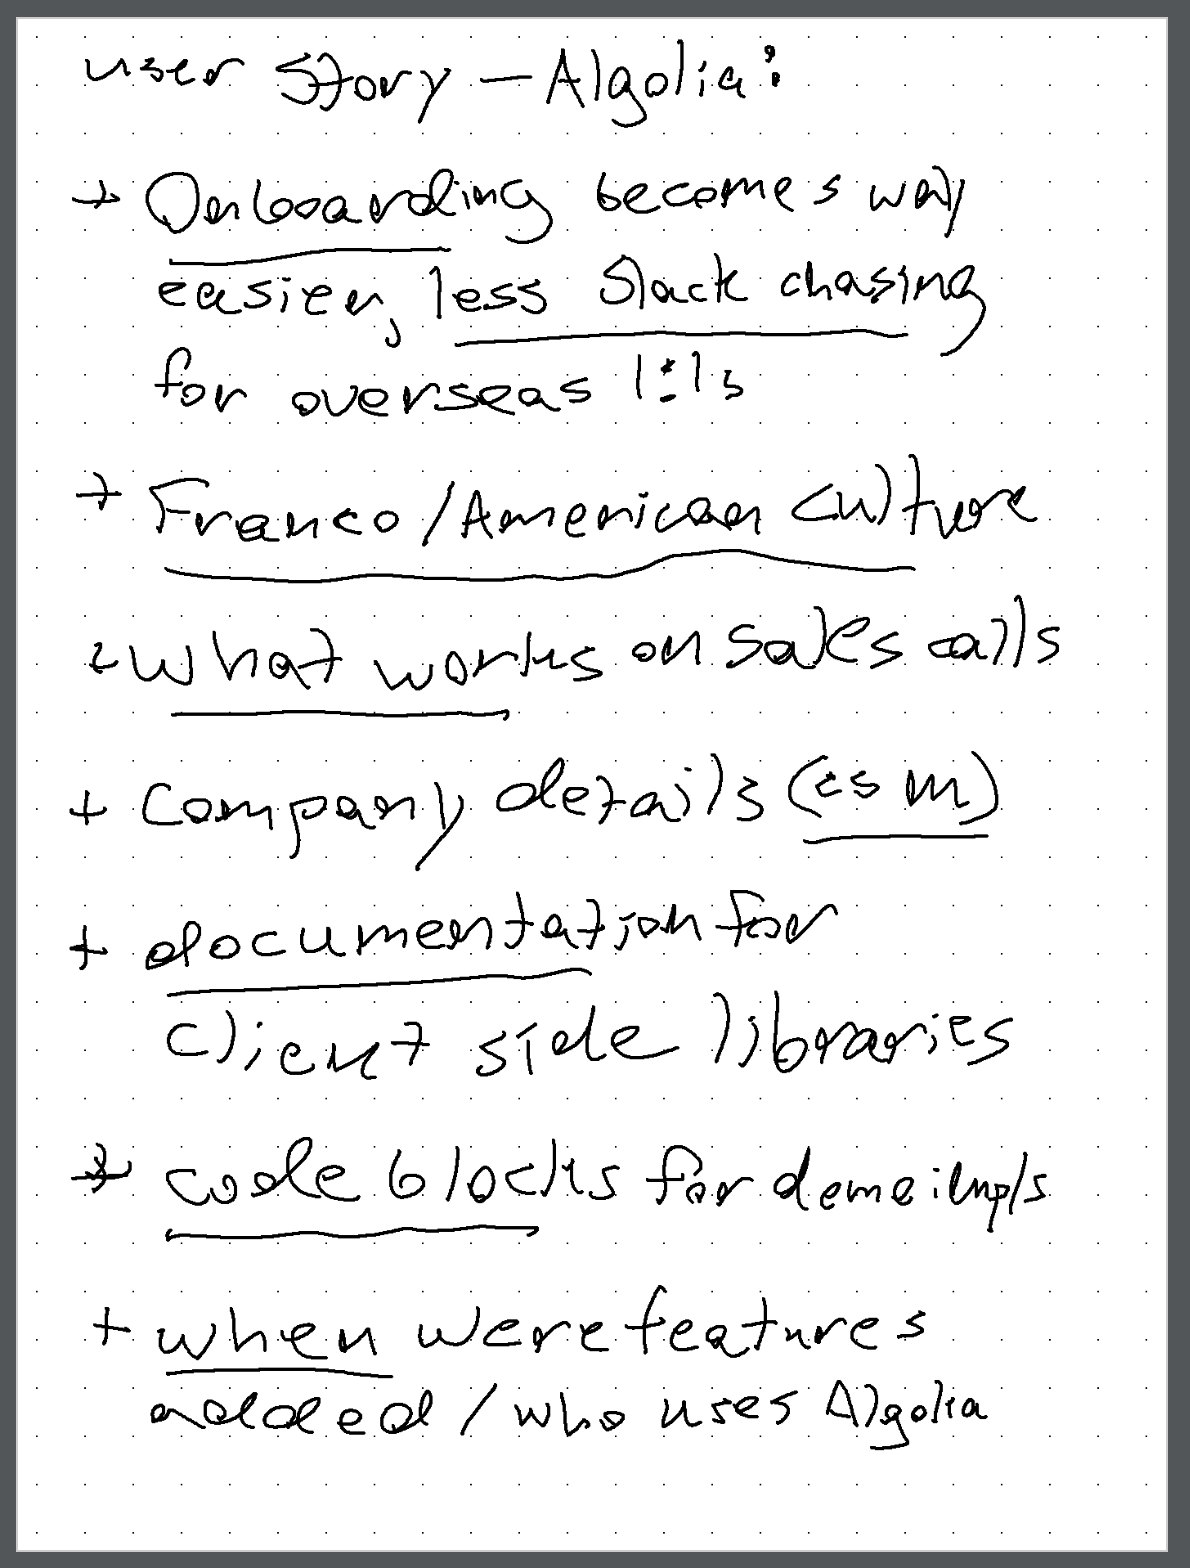 user Story - Algolia:
+ Onboarding becomes way
easier, less Slack chasing
for overseas 1:1s
+ Franco/American culture
what works on sales calls
+ Company details (csm)
+ documentation for
client side libraries
+ code blocks for
+ when were features
added / who uses Algolia